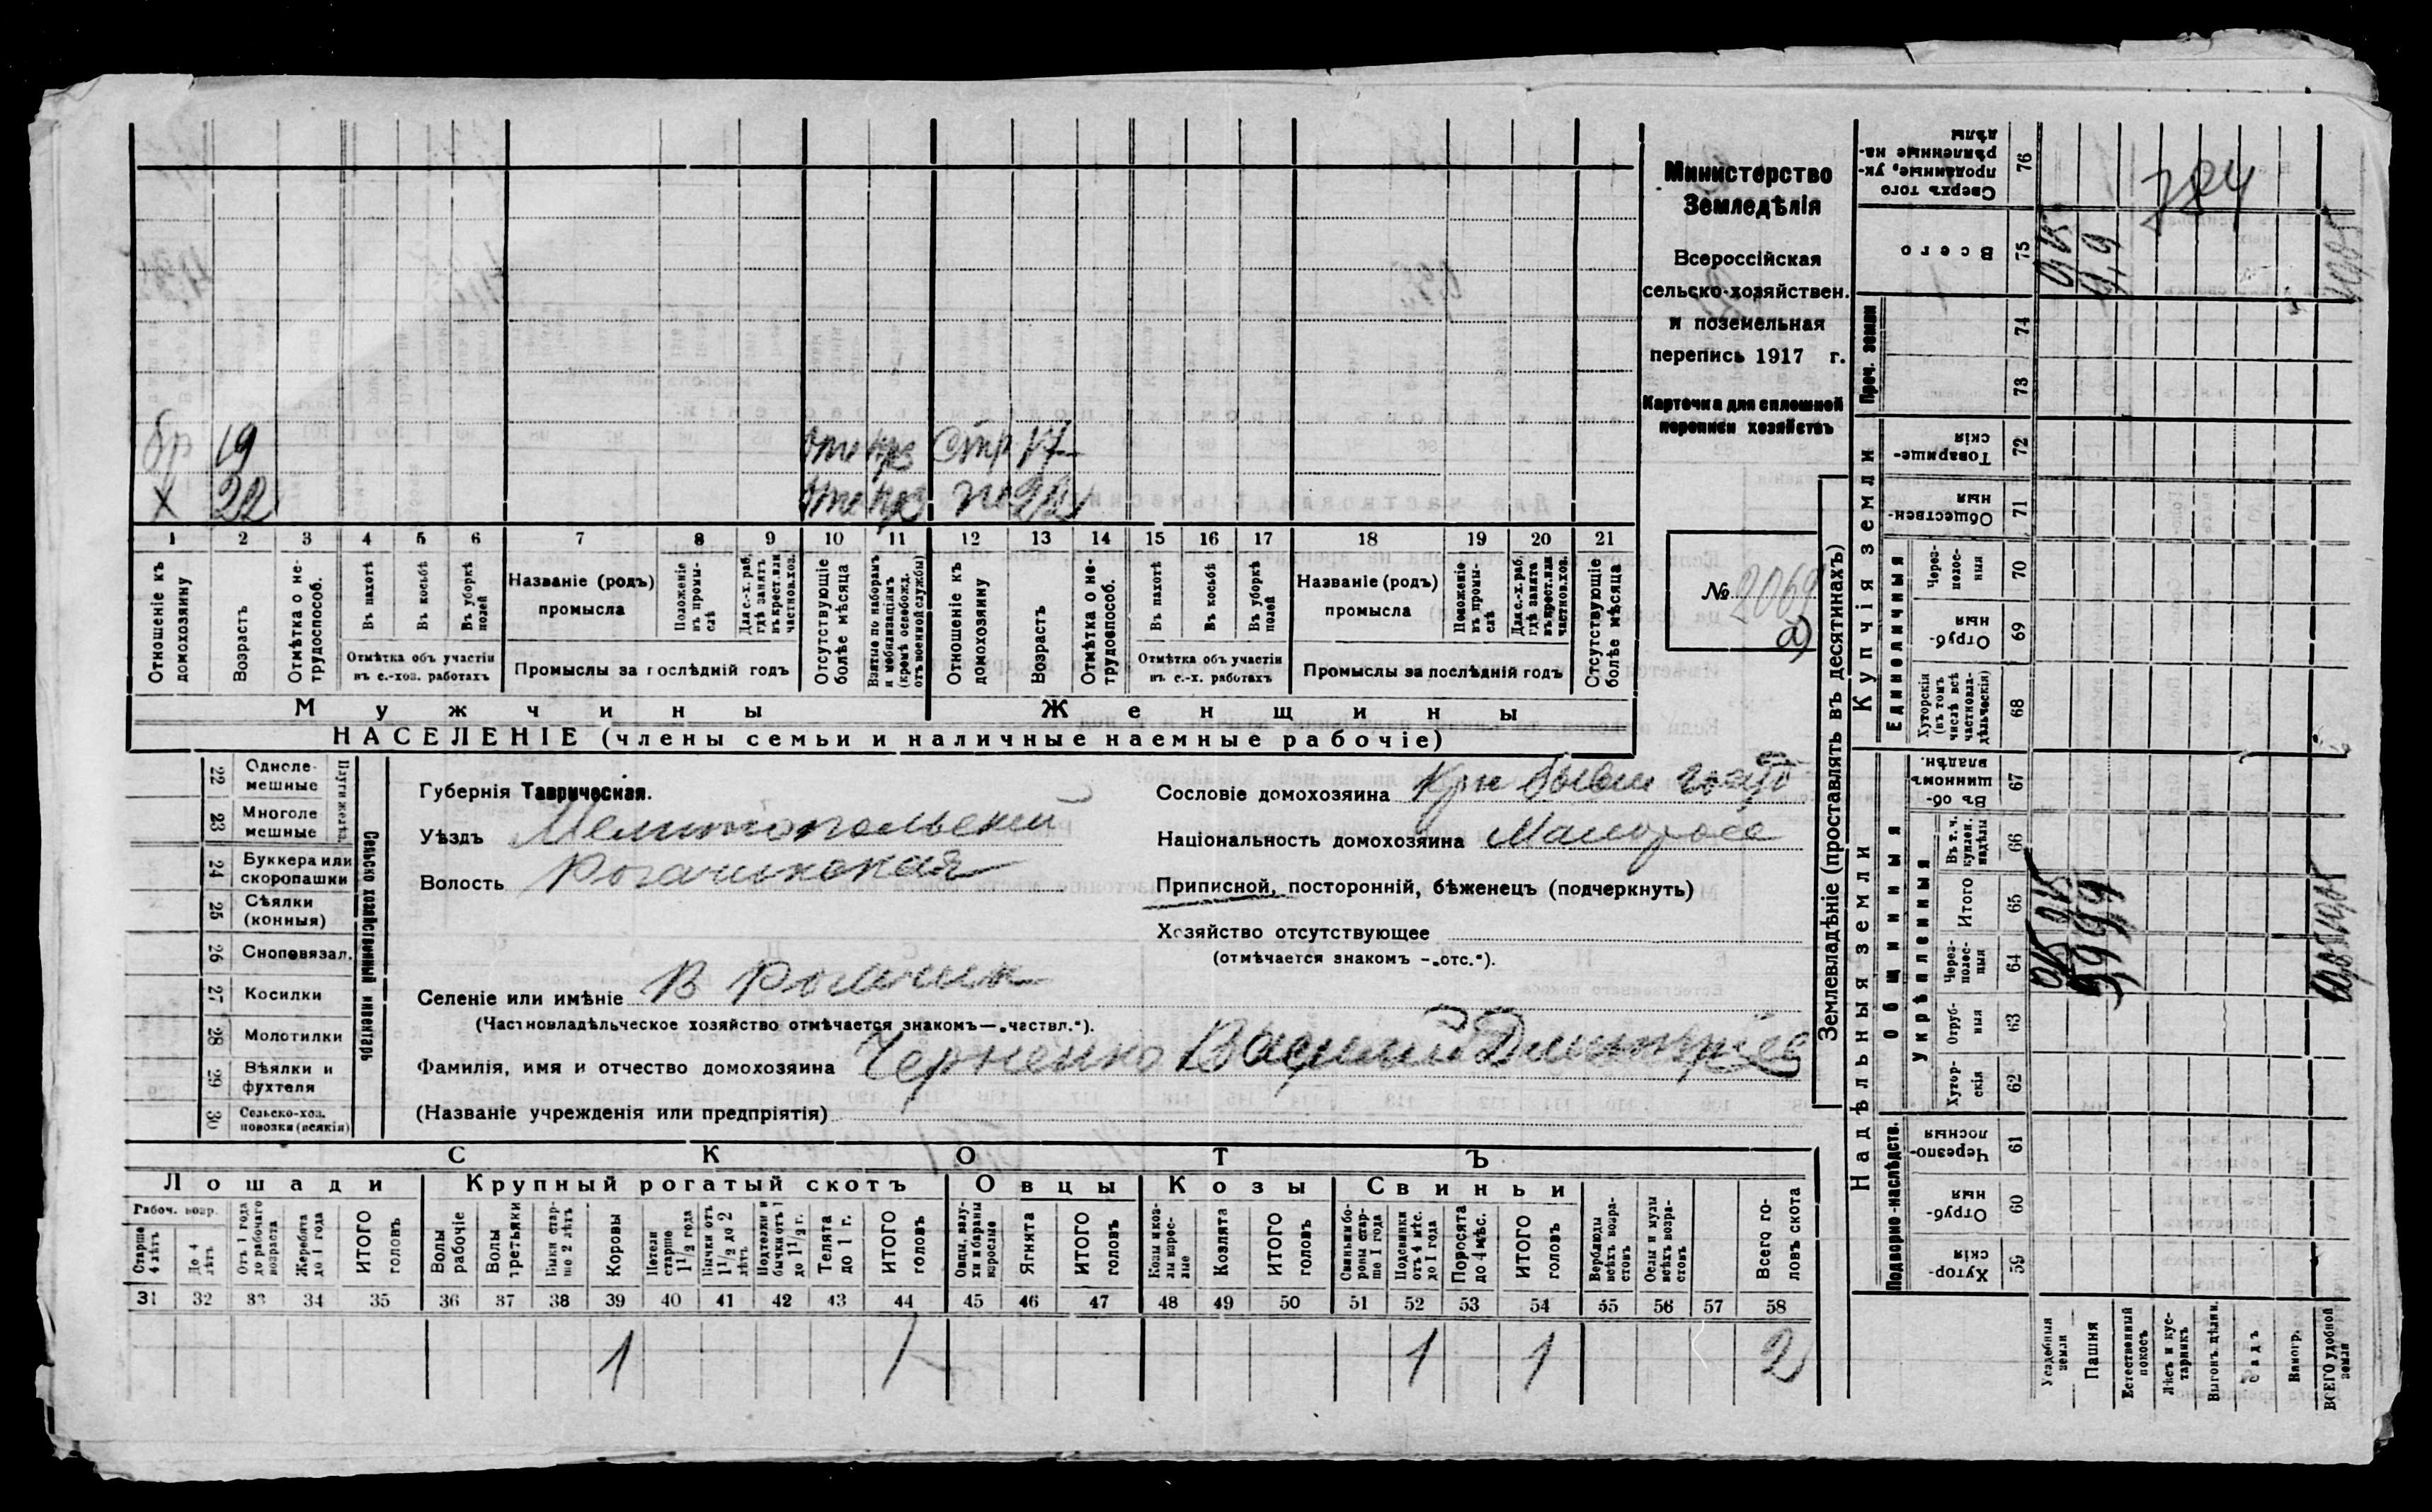 Министерство
Земледѣлія
Всероссійская
сельско-хозяйствен.
и поземельная
перепись 1917 г.
Карточка для сплошной
переписи хозяйствъ
№ 2069
а)
бр 19 Отс Стр 17
х 22 Отс 22
1 2 3 4 5 6 7 8 9 10 11 12 13 14 15 16 17 18 19 20 21
Отношеніе къ домохозяину
Возрастъ
Отмѣтка о нетрудоспособ.
Въ пахотѣ
Въ косьбѣ
Въ уборкѣ полей
Отмѣтка объ участіи въ с.-хоз. работахъ
Названіе (родъ) промысла
Положеніе въ промыслѣ
Для с.-х. раб. гдѣ занятъ въ крест. или частнов. хоз.
Промыслы за послѣдній годъ
Отсутствующіе болѣе мѣсяца
Взятые по наборамъ и мобилизаціямъ (кромѣ освобожд. отъ военной службы)
Отношеніе къ домохозяину
Возрастъ
Отмѣтка о нетрудоспособ.
Въ пахотѣ
Въ косьбѣ
Въ уборкѣ полей
Отмѣтка объ участіи въ с.-х. работахъ
Названіе (родъ) промысла
Положеніе въ промыслѣ
Для с.-х. раб. гдѣ занята въ крест. или частнов. хоз.
Промыслы за послѣдній годъ
Отсутствующіе болѣе мѣсяца
Мужчины Женщины
НАСЕЛЕНІЕ (члены семьи и наличные наемные рабочіе)
Сельско хозяйственный инвентарь
22 Однолемешные
23 Многолемешные
24 Буккера или скоропашки
25 Сѣялки (конныя)
26 Сноповязал.
27 Косилки
28 Молотилки
29 Вѣялки и фухтеля
30 Сельско-хоз. повозки (всякія)
Губернія Таврическая.
Уѣздъ Мелитопольский
Волость Рогачикская
Селеніе или имѣніе В Рогачик
(Частновладѣльческое хозяйство отмѣчается знакомъ—„частвл.“).
Фамилія, имя и отчество домохозяина Черненко Василий Дмитріев
(Названіе учрежденія или предпріятія)
Сословіе домохозяина Крн бывш
Национальность домохозяина Малоросс
Приписной, посторонній, бѣженецъ (подчеркнуть)
Хозяйство отсутствующее
(отмѣчается знакомъ -„отс.“).
СКОТЪ
Лошади Крупный рогатый скотъ Овцы Козы Свиньи
Рабоч. возр.
Старше 4 лѣтъ
До 4 лѣтъ
Отъ 1 года до рабочаго возраста
Жеребята до 1 года
ИТОГО головъ
Волы рабочіе
Волы третьяки
Быки старше 2 лѣтъ
Коровы
Нетели старше 1 1/2 года
Бычки отъ 1 1/2 до 2 лѣтъ
Подтелки и бычки отъ 1 до 1 1/2 г.
Телята до 1 г.
ИТОГО головъ
Овцы, валухи и бараны взрослые
Ягнята
ИТОГО головъ
Козы и козлы взрослые
Козлята
ИТОГО головъ
Свиньи боровы старше 1 года
Подсвинки отъ 4 мѣс. до 1 года
Поросята до 4 мѣс.
ИТОГО головъ
Верблюды всѣхъ возрастовъ
Ослы и мулы всѣхъ возрастовъ
Всего головъ скота
31 32 33 34 35 36 37 38 39 40 41 42 43 44 45 46 47 48 49 50 51 52 53 54 55 56 57 58
1 1 1 1 2
Землевладѣніе (проставлять въ десятинахъ)
Надѣльныя земли
Подворно-наслѣдств.
59 Хуторскія
60 Отрубныя
61 Черезполосныя
Общинныя
Укрѣпленныя
62 Хуторскія
63 Отрубныя
64 Черезполосныя
65 Итого
66 Въ т. ч. куплен. надѣлы
67 Въ общинномъ владѣн.
Купчія земли
Единоличныя
68 Хуторскія (въ томъ числѣ всѣ частновладѣльческія)
69 Отрубныя
70 Черезполосныя
71 Общественныя
72 Товарищескія
Проч. земли
73
74
75 Всего
76 Сверхъ того проданные, укрѣпленные надѣлы
Усадебныя земли
Пашня
Естественный покосъ
Лѣсъ и кустарникъ
Выгонъ дѣлим.
Садъ
Виногр.
ВСЕГО удобной земли
9,9
784